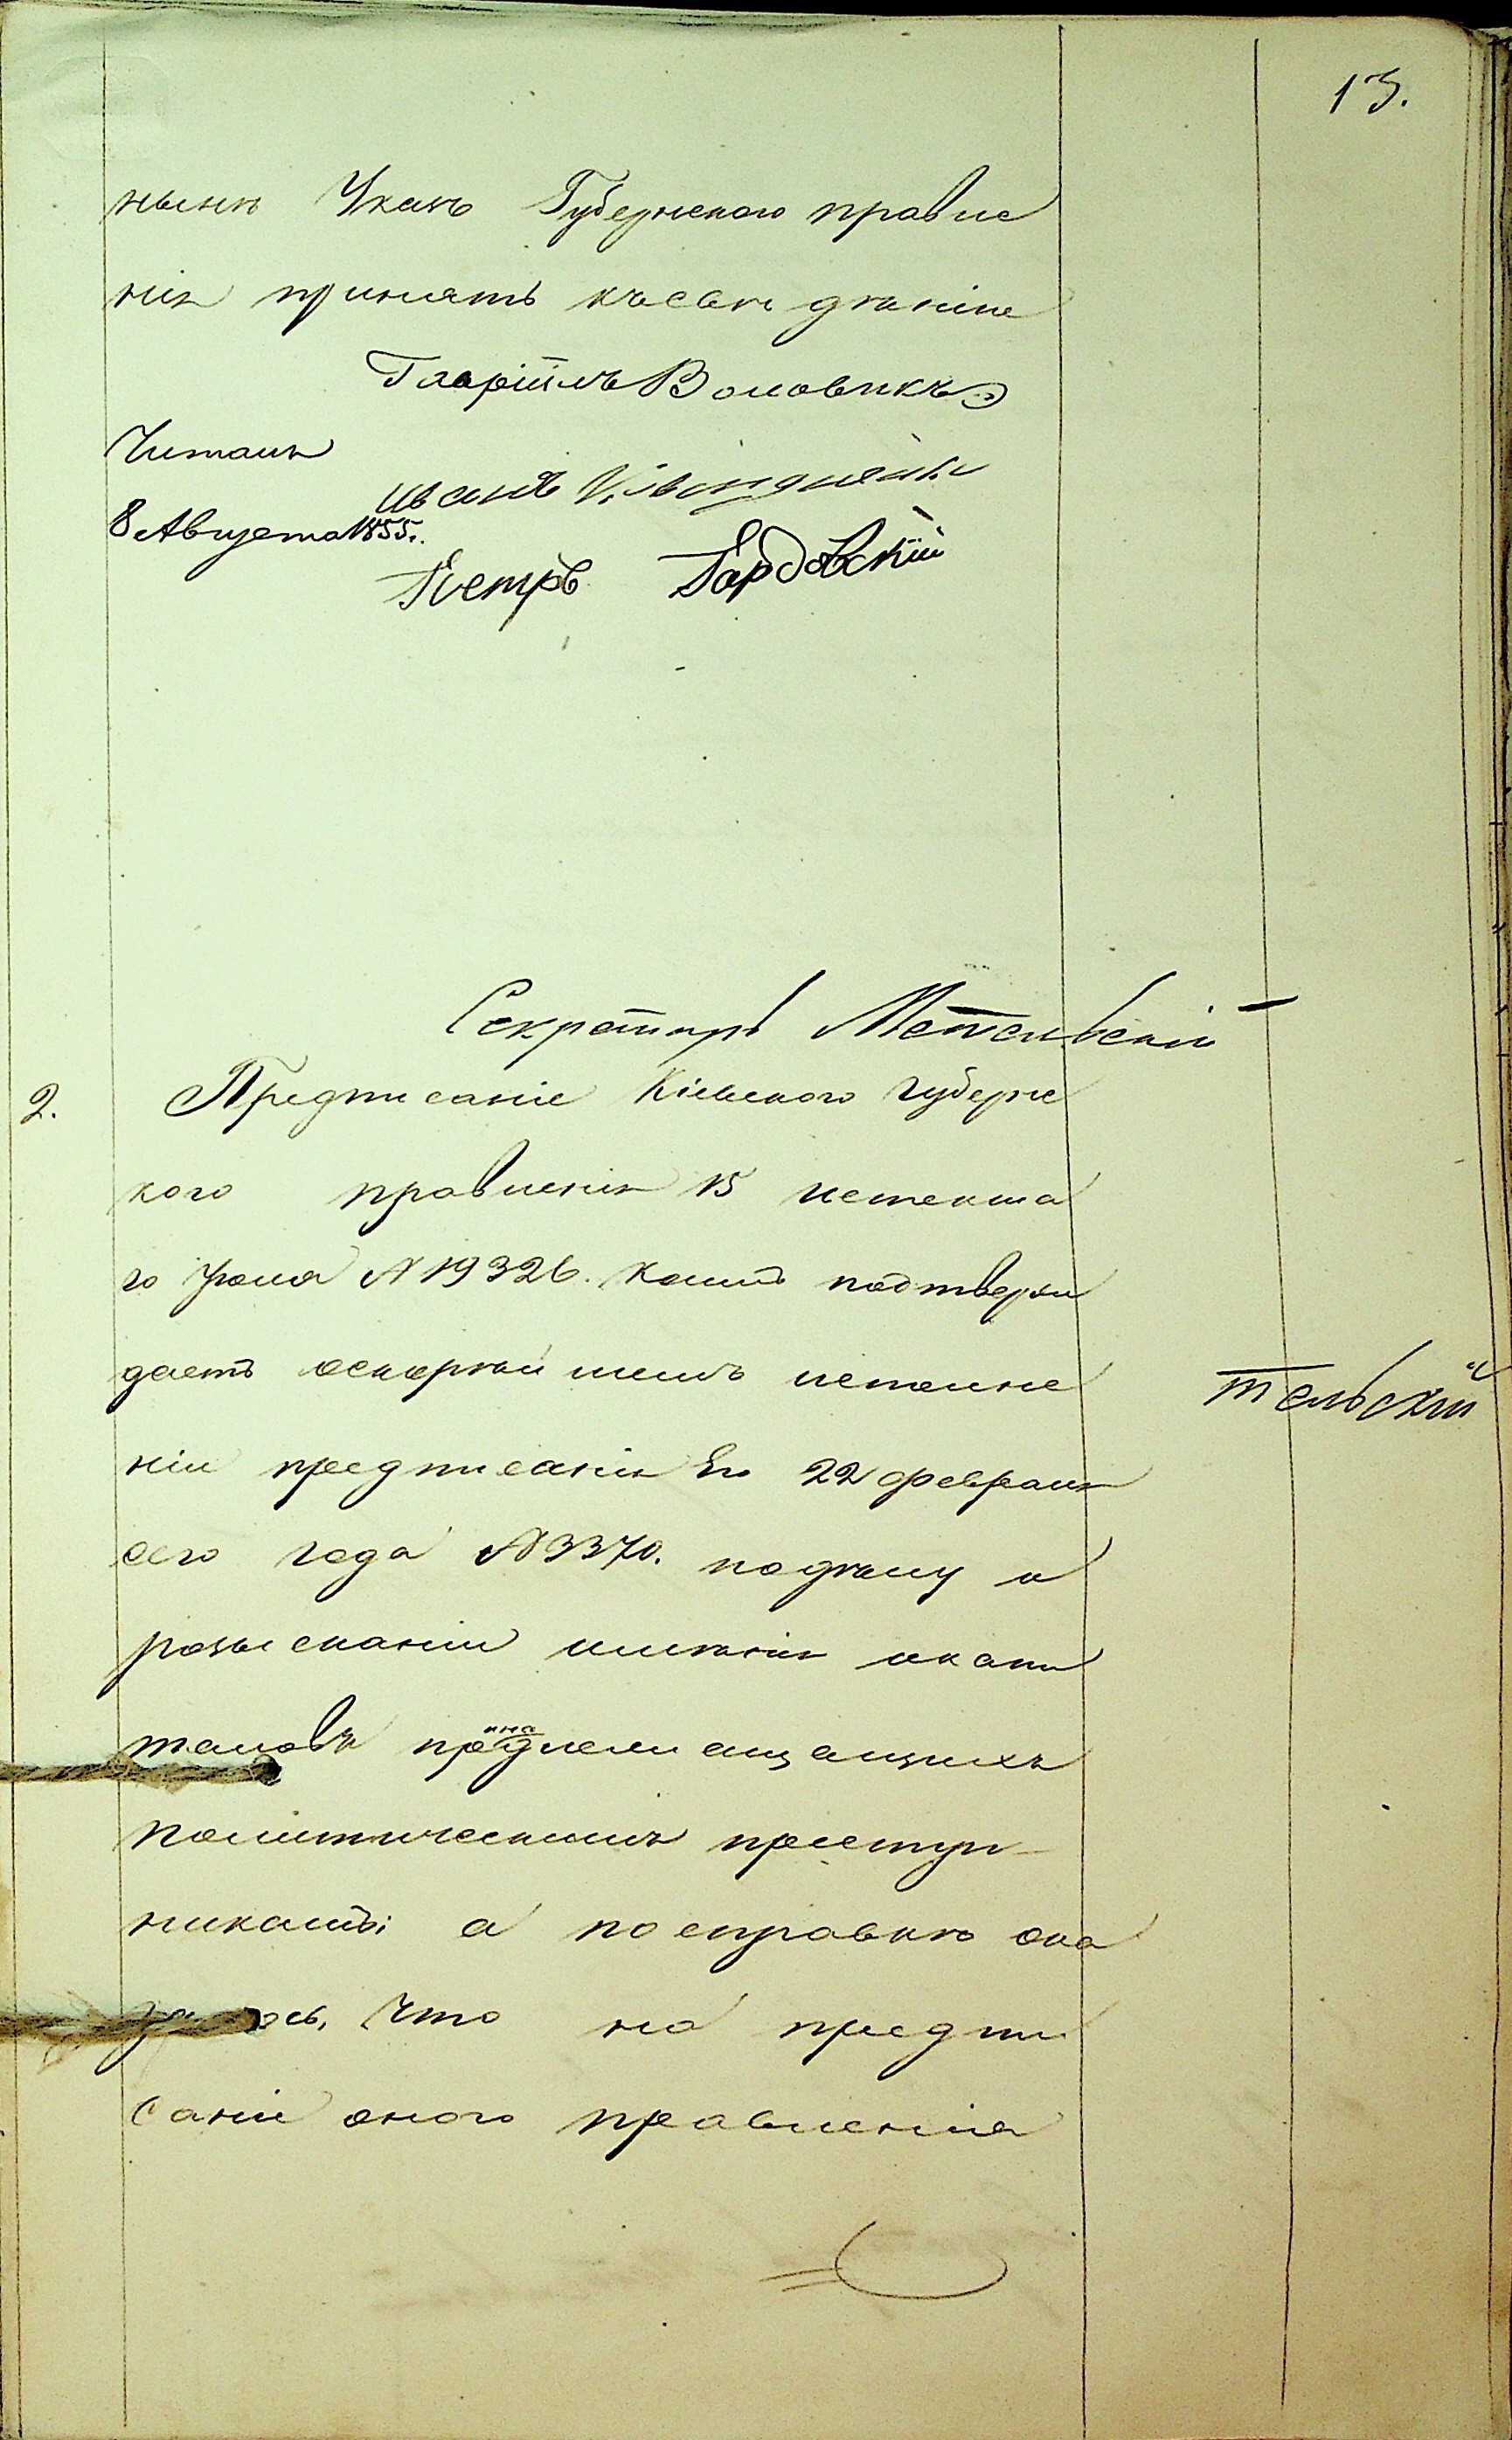 13.
ныхъ Указъ Губернскаго правле
нія принять къ свѣ дѣнію
Гавріилъ Воловикъ
Читалъ
Иванъ
8 Августа 1855.
Петръ Бардовскій
Секретарь Метельскій
2. Предписаніе Кіевского Губернс
кого правленія 15 истекша
го Іюля N 19326. коимъ подтверж
даетъ оскорѣй шемъ исполне
тельскій
ніи предписанія Его 22 февраля
сего года N 3370. по дѣлу о
розысканіи имѣнія и капи
таловъ принадлежащихъ
политическимъ преступ-
никамъ; а по справкѣ ока
залось, что на предпи
саніе оного правленія